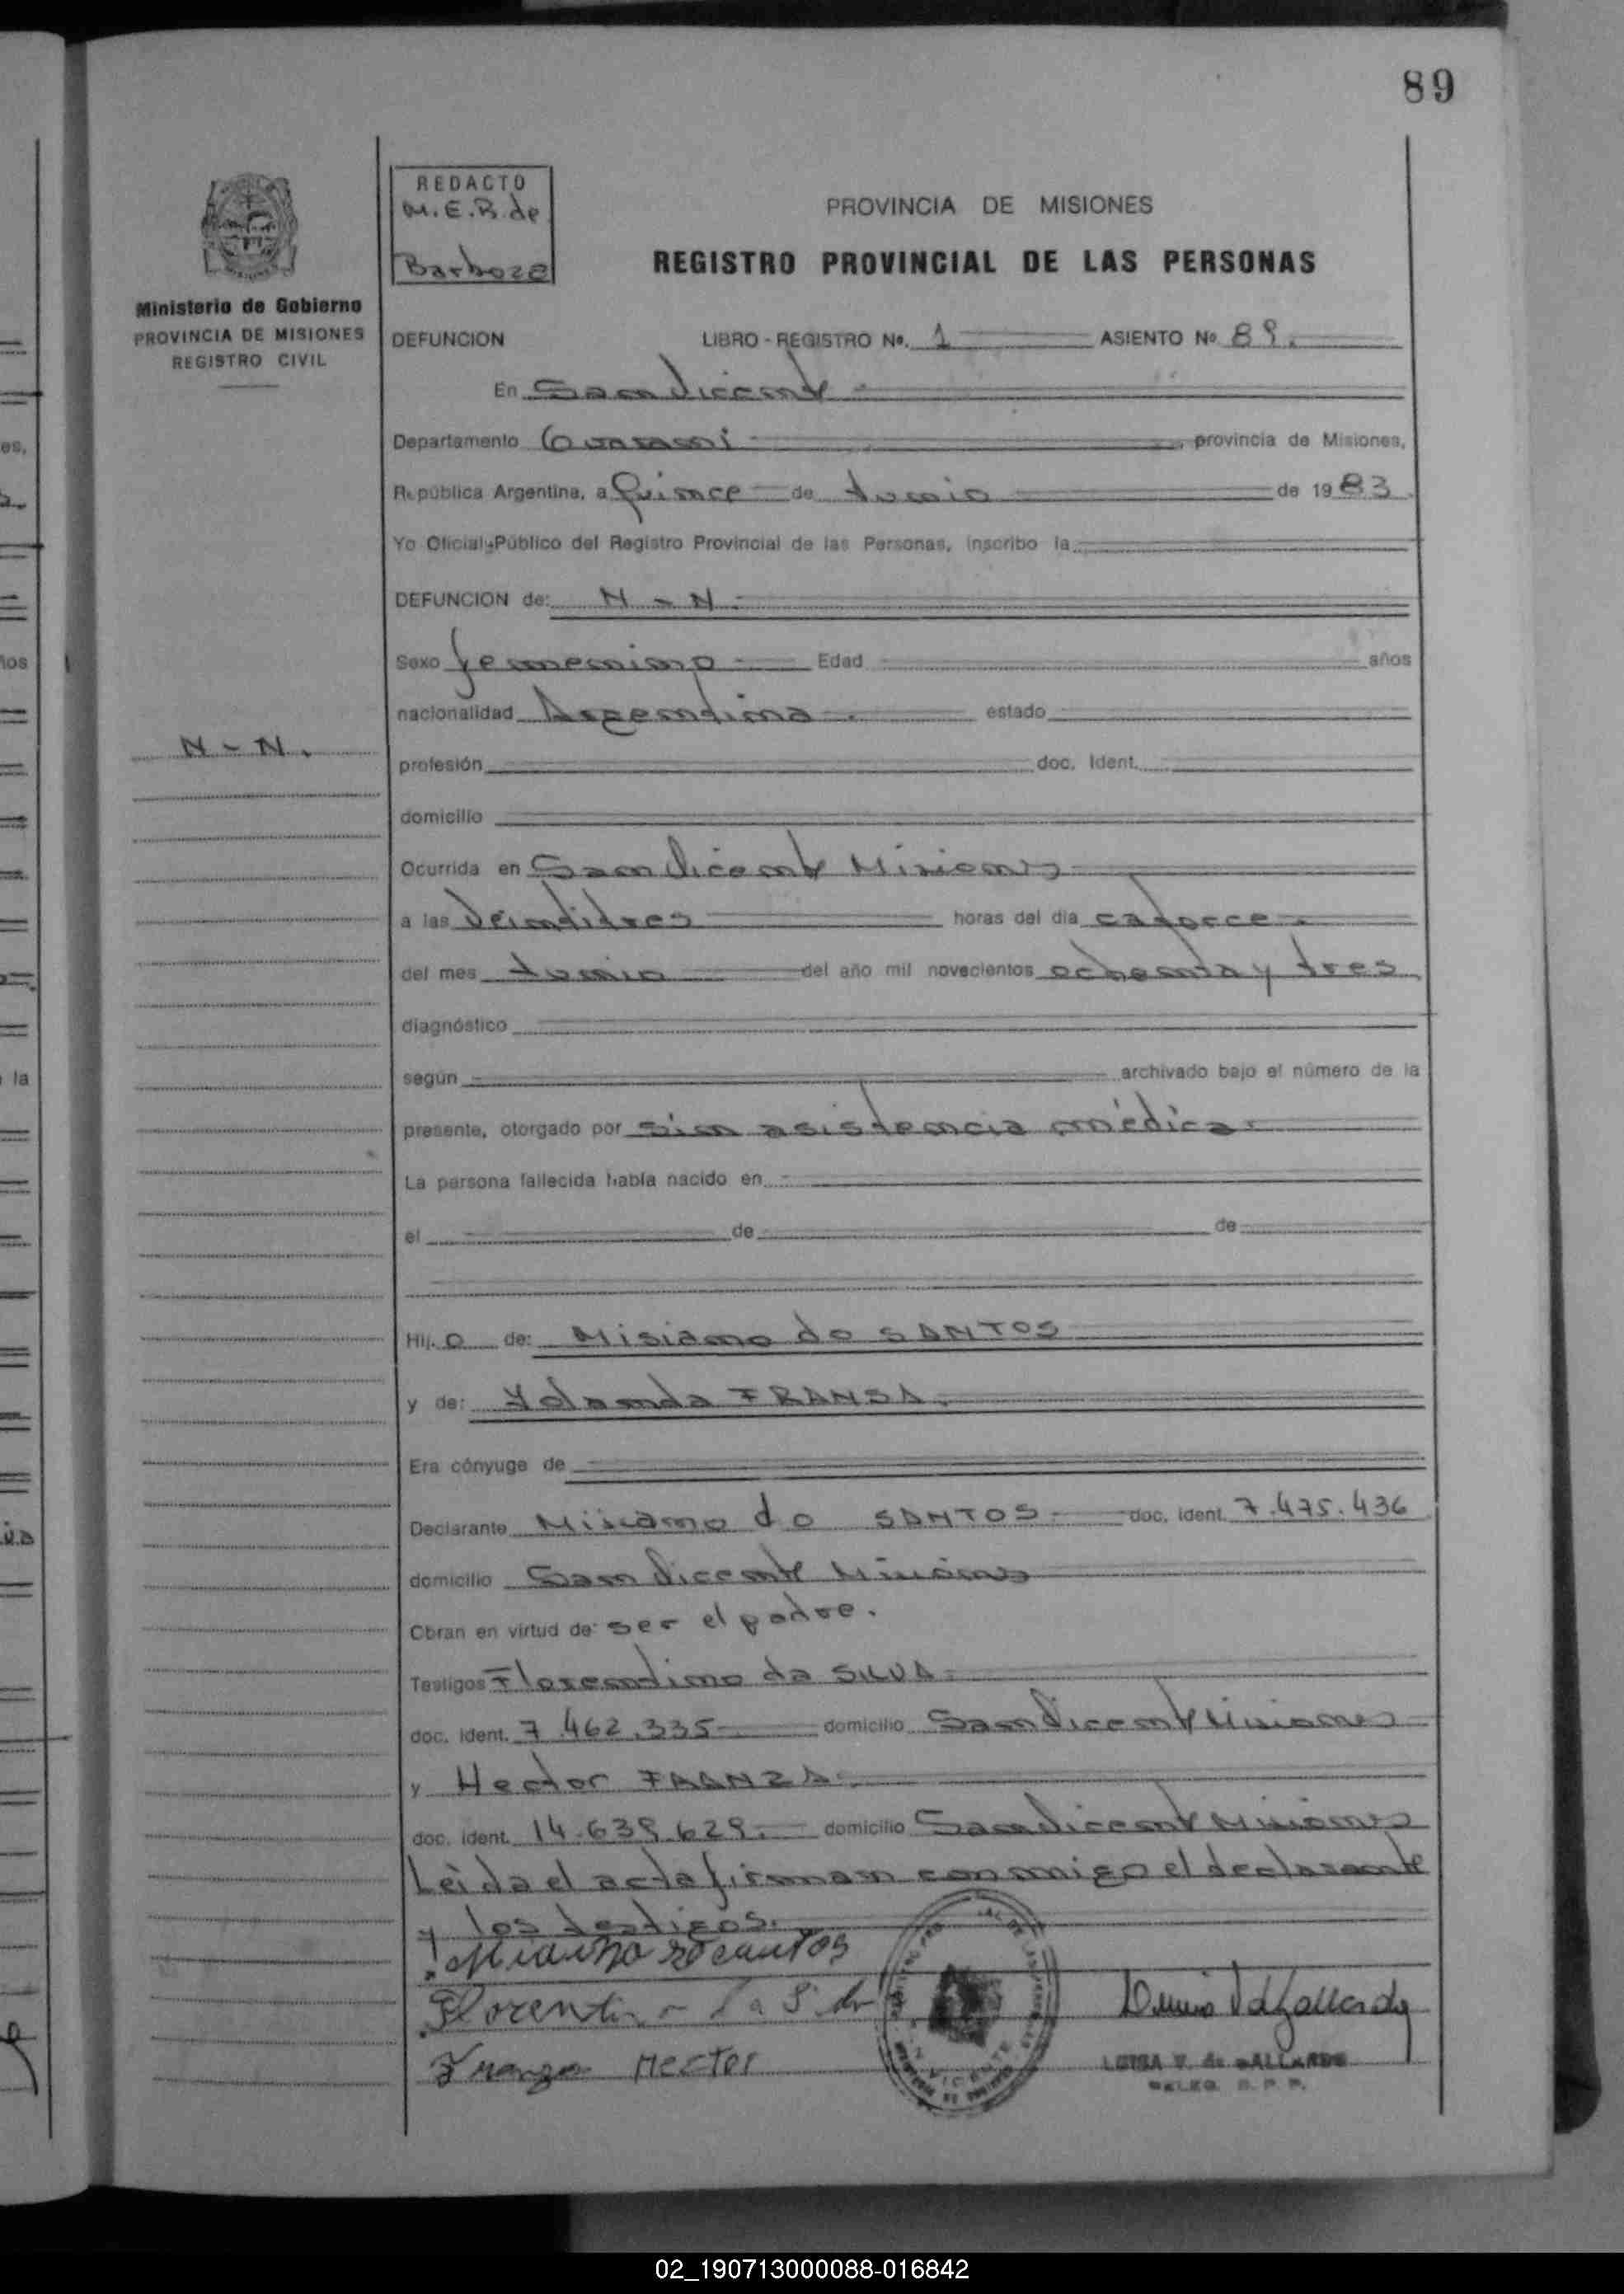 89
REDACTO
M.E.B. de
Barboza
Ministerio de Gobierno
PROVINCIA DE MISIONES
REGISTRO CIVIL
PROVINCIA DE MISIONES
REGISTRO PROVINCIAL DE LAS PERSONAS
DEFUNCION LIBRO - REGISTRO No. 1 ASIENTO No 89.
En San Vicente
Departamento Guarani provincia de Misiones,
República Argentina, a Quince de Junio de 1983.
Yo Oficial Público del Registro Provincial de las Personas, inscribo la
DEFUNCION de: N - N.
Sexo femenino Edad años
nacionalidad Argentina. estado
N - N.
profesión doc. Ident.
domicilio
Ocurrida en San Vicente Misiones
a las Veintitres horas del día catorce.
del mes Junio del año mil novecientos ochenta y tres
diagnóstico
según archivado bajo el número de la
presente, otorgado por sin asistencia médica
La persona fallecida había nacido en
el de de
Hij. o de: Misiano do SANTOS
y de: Yolanda FRANSA.
Era cónyuge de
Declarante Misiano do SANTOS doc. ident. 7.475.436
domicilio San Vicente Misiones
Obran en virtud de: ser el padre.
Testigos Florentino da SILVA
doc. ident. 7.462.335 domicilio San Vicente Misiones
y Hector FRANZA.
doc. ident. 14.639.629. domicilio San Vicente Misiones
Leida el acta firman conmigo el declarante
y los testigos.
Franza Hector
LUISA V. de GALLARDO
DELEG. R. P. P.
02_190713000088-016842